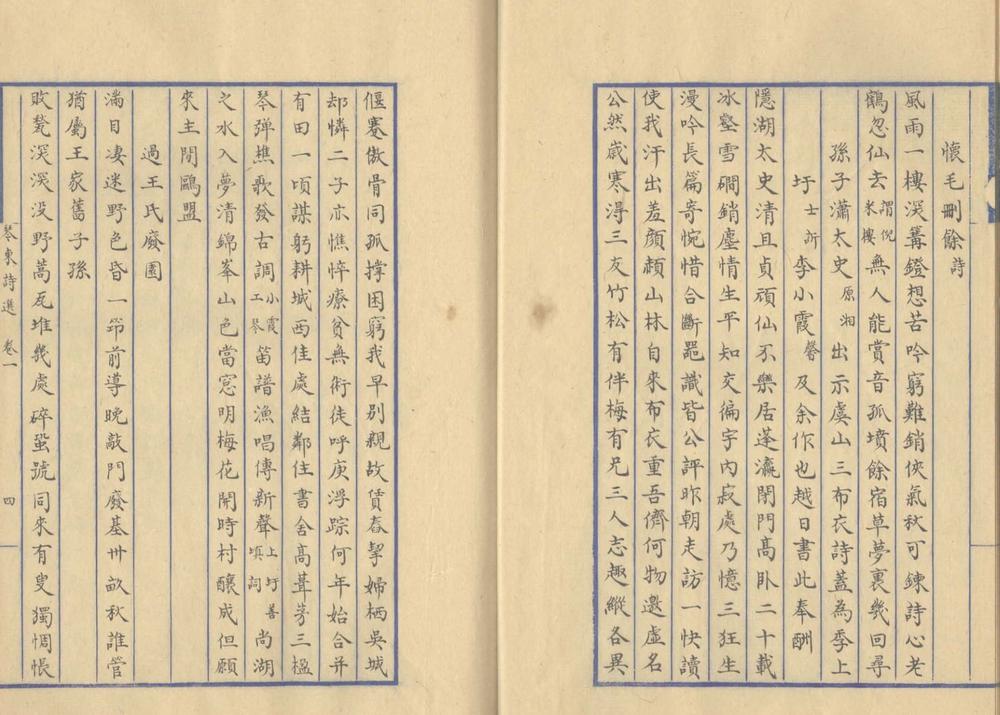 懷毛刪餘詩
風雨一樓深篝鐙想苦吟窮難銷俠氣秋可鍊詩心老
鶴忽仙去謂倪米樓無人能賞音孤墳餘宿草夢裏幾回尋
孫子瀟太史原湘出示虞山三布衣詩蓋為季上
圩士訢李小霞馨及余作也越日書此奉酬
隱湖太史清且貞頑仙不樂居蓬瀛閉門高臥二十載
冰壑雪磵銷塵情生平知交徧宇內寂處乃憶三狂生
漫吟長篇寄惋惜合斷器識皆公評昨朝走訪一快讀
使我汗出羞顏赬山林自來布衣重吾儕何物邀虛名
公然歲寒淂三友竹松有伴梅有兄三人志趣縱各異
偃蹇傲骨同孤撑困窮我早別親故賃舂挈婦栖吳城
却憐二子亦憔悴療貧無術徒呼庚浮踪何年始合并
有田一頃謀躬耕城西佳處結鄰住書舍高葺茅三楹
琴弹樵歌發古調小霞工琴笛譜漁唱傳新聲上圩善填詞尚湖
之水入夢清錦峯山色當窓明梅花開時村釀成但願
來主閒鷗盟
過王氏廢園
滿目凄迷野色昏一笻前導晚敲門廢基卅畝秋誰管
猶屬王家舊子孫
敗甃深深没野蒿瓦堆幾處碎蛩號同來有叟獨惆悵
琴東詩選 卷一
四